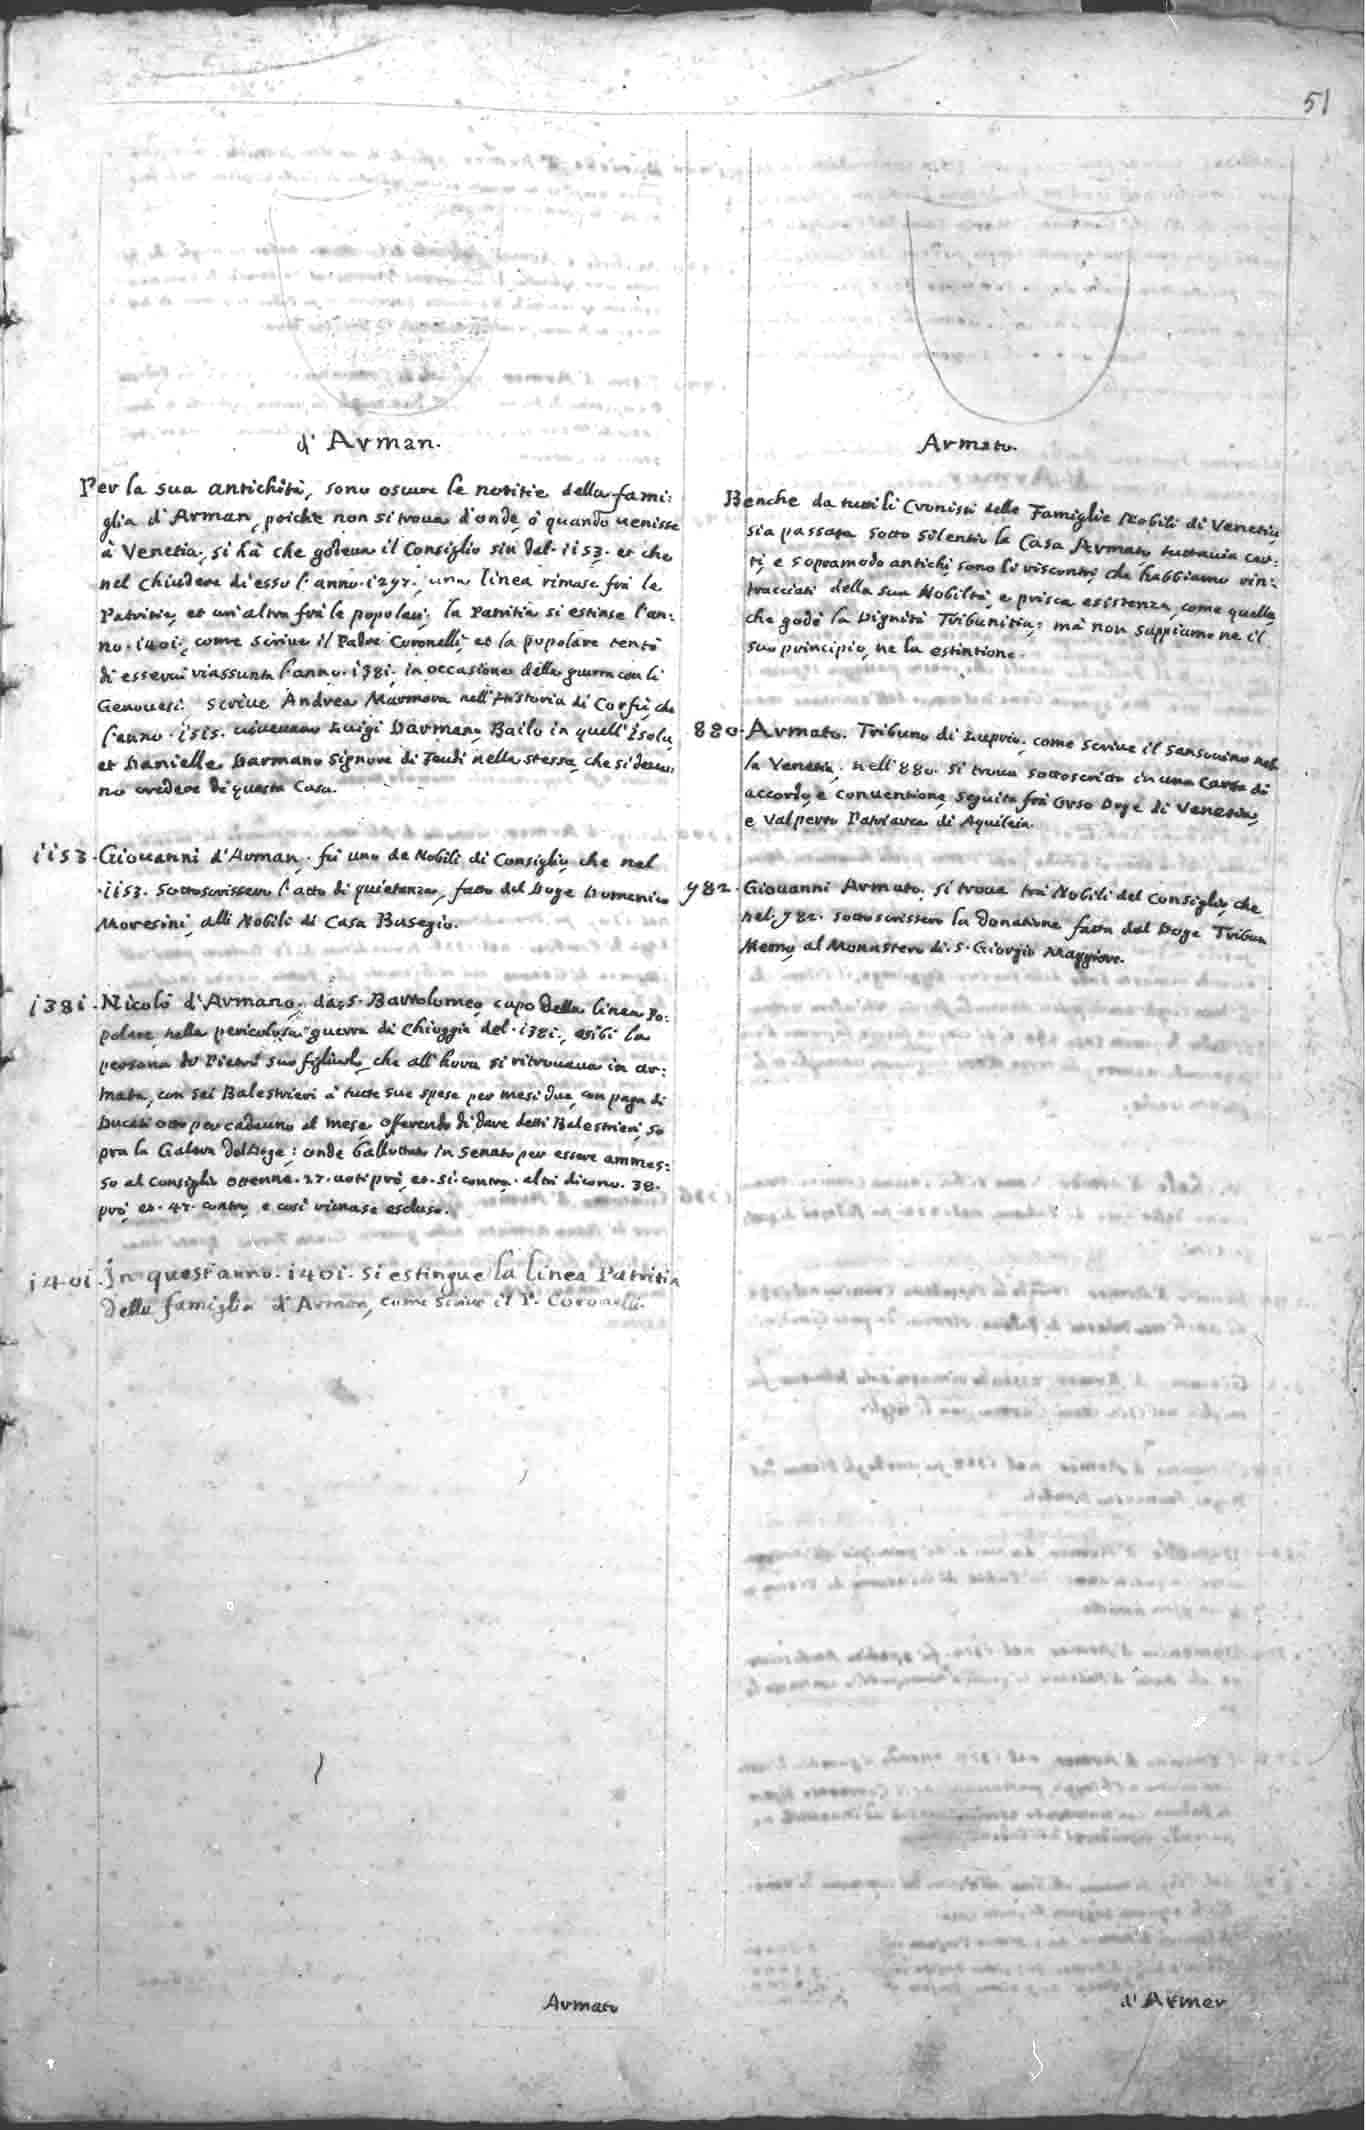 51
d' Arman.
Per la sua antichità, sono oscure le notitie della fami:
glia d'Arman, poiche non si troua d'onde, ò quando uenisse
à Venetia, si hà che godeua il Consiglio sin del. 1153. et che
nel chiudere di esso l'anno. 1297. una linea rimase frà le
Patritie, et un'altra frà le popolari, la Patritia si estinse l'an:
no. 1401., come scriue il Padre Coronelli, et la popolare tentò
di esserui riassunta l'anno. 1381. in occasione della guerra con li
Genouesi. scriue Andrea Marmora nell'Historia di Corfù, che
l'anno. 1515. uiueuano Luigi Darmano Bailo in quell'Isola,
et Danielle Darmano Signore di Feudi nella stessa, che si deuo:
no credere di questa Casa.
1153. Giouanni d'Arman, fù uno de Nobili di Consiglio, che nel
.1153. sottoscrissero l'atto di quietanza, fatto del Doge Domenico
Moresini, alli Nobili di Casa Basegio.
1381. Nicolò d'Armano, da S. Bartolomeo, capo della linea Po:
polare, nella pericolosa guerra di Chioggia del. 1381., esibì la
persona di Pietro suo figliuolo, che all'hora si ritrouaua in ar:
mata, con sei Balestrieri à tutte sue spese per mesi due, con paga di
Ducati otto per cadauno al mese, offerendo di dare detti Balestrieri, so
pra la Galera del Doge; onde Ballottato in Senato per essere ammes:
so al Consiglio ottenne. 27. uoti prò, et. 51. contra. altri dicono. 38.
prò, et. 47. contra, e così rimase escluso.
1401. In quest'anno. 1401. si estingue la linea Patritia
della famiglia d'Arman, come scriue il P. Coronelli.
Armato
Armato.
Benche da tutti li Cronisti delle Famiglie Nobili di Venetia
sia passata sotto silentio la Casa Armato, tuttauia cer:
ti, e sopramodo antichi sono li riscontri che habbiamo rin:
tracciati della sua Nobiltà, e prisca esistenza, come quella
che godè la Dignità Tribunitia; mà non sappiamo ne il
suo principio, ne la estintione.
880. Armato. Tribuno di Luprio, come scriue il Sansouino nel
la Venetia. nell'880. si troua sottoscritto in una Carta di
accordo, e conuentione seguita frà Orso Doge di Venetia,
e Valperto Patriarca di Aquileia.
982. Giouanni Armato, si troua trà Nobili del Consiglio, che
nel. 982. sottoscrissero la donatione fatta dal Doge Tribun
Memo, al Monastero di S. Giorgio Maggiore.
d'Armer